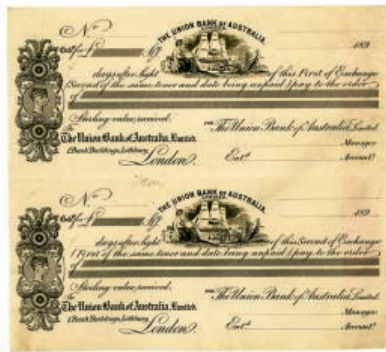 No.
THE UNION BANK OF AUSTRALIA
LIMITED
for £ 189
days after sight of this First of Exchange
(Second of the same tenor and date being unpaid) pay to the order
of
Sterling value, received.
To
The Union Bank of Australia, Limited, FOR The Union Bank of Australia Limited.
1 Bank Buildings, Lothbury, Manager.
London. Entd. Accountt.
No.
THE UNION BANK OF AUSTRALIA
LIMITED
for £ 189
days after sight of this Second of Exchange
(First of the same tenor and date being unpaid) pay to the order
of
Sterling value, received.
To
The Union Bank of Australia, Limited, FOR The Union Bank of Australia Limited.
1 Bank Buildings, Lothbury, Manager.
London. Entd. Accountt.